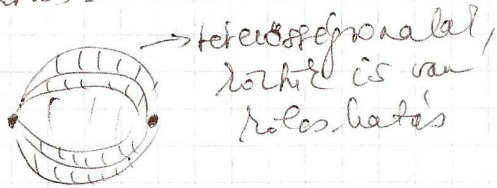 térerősségvonalak,
köztük is van
kölcs. hatás